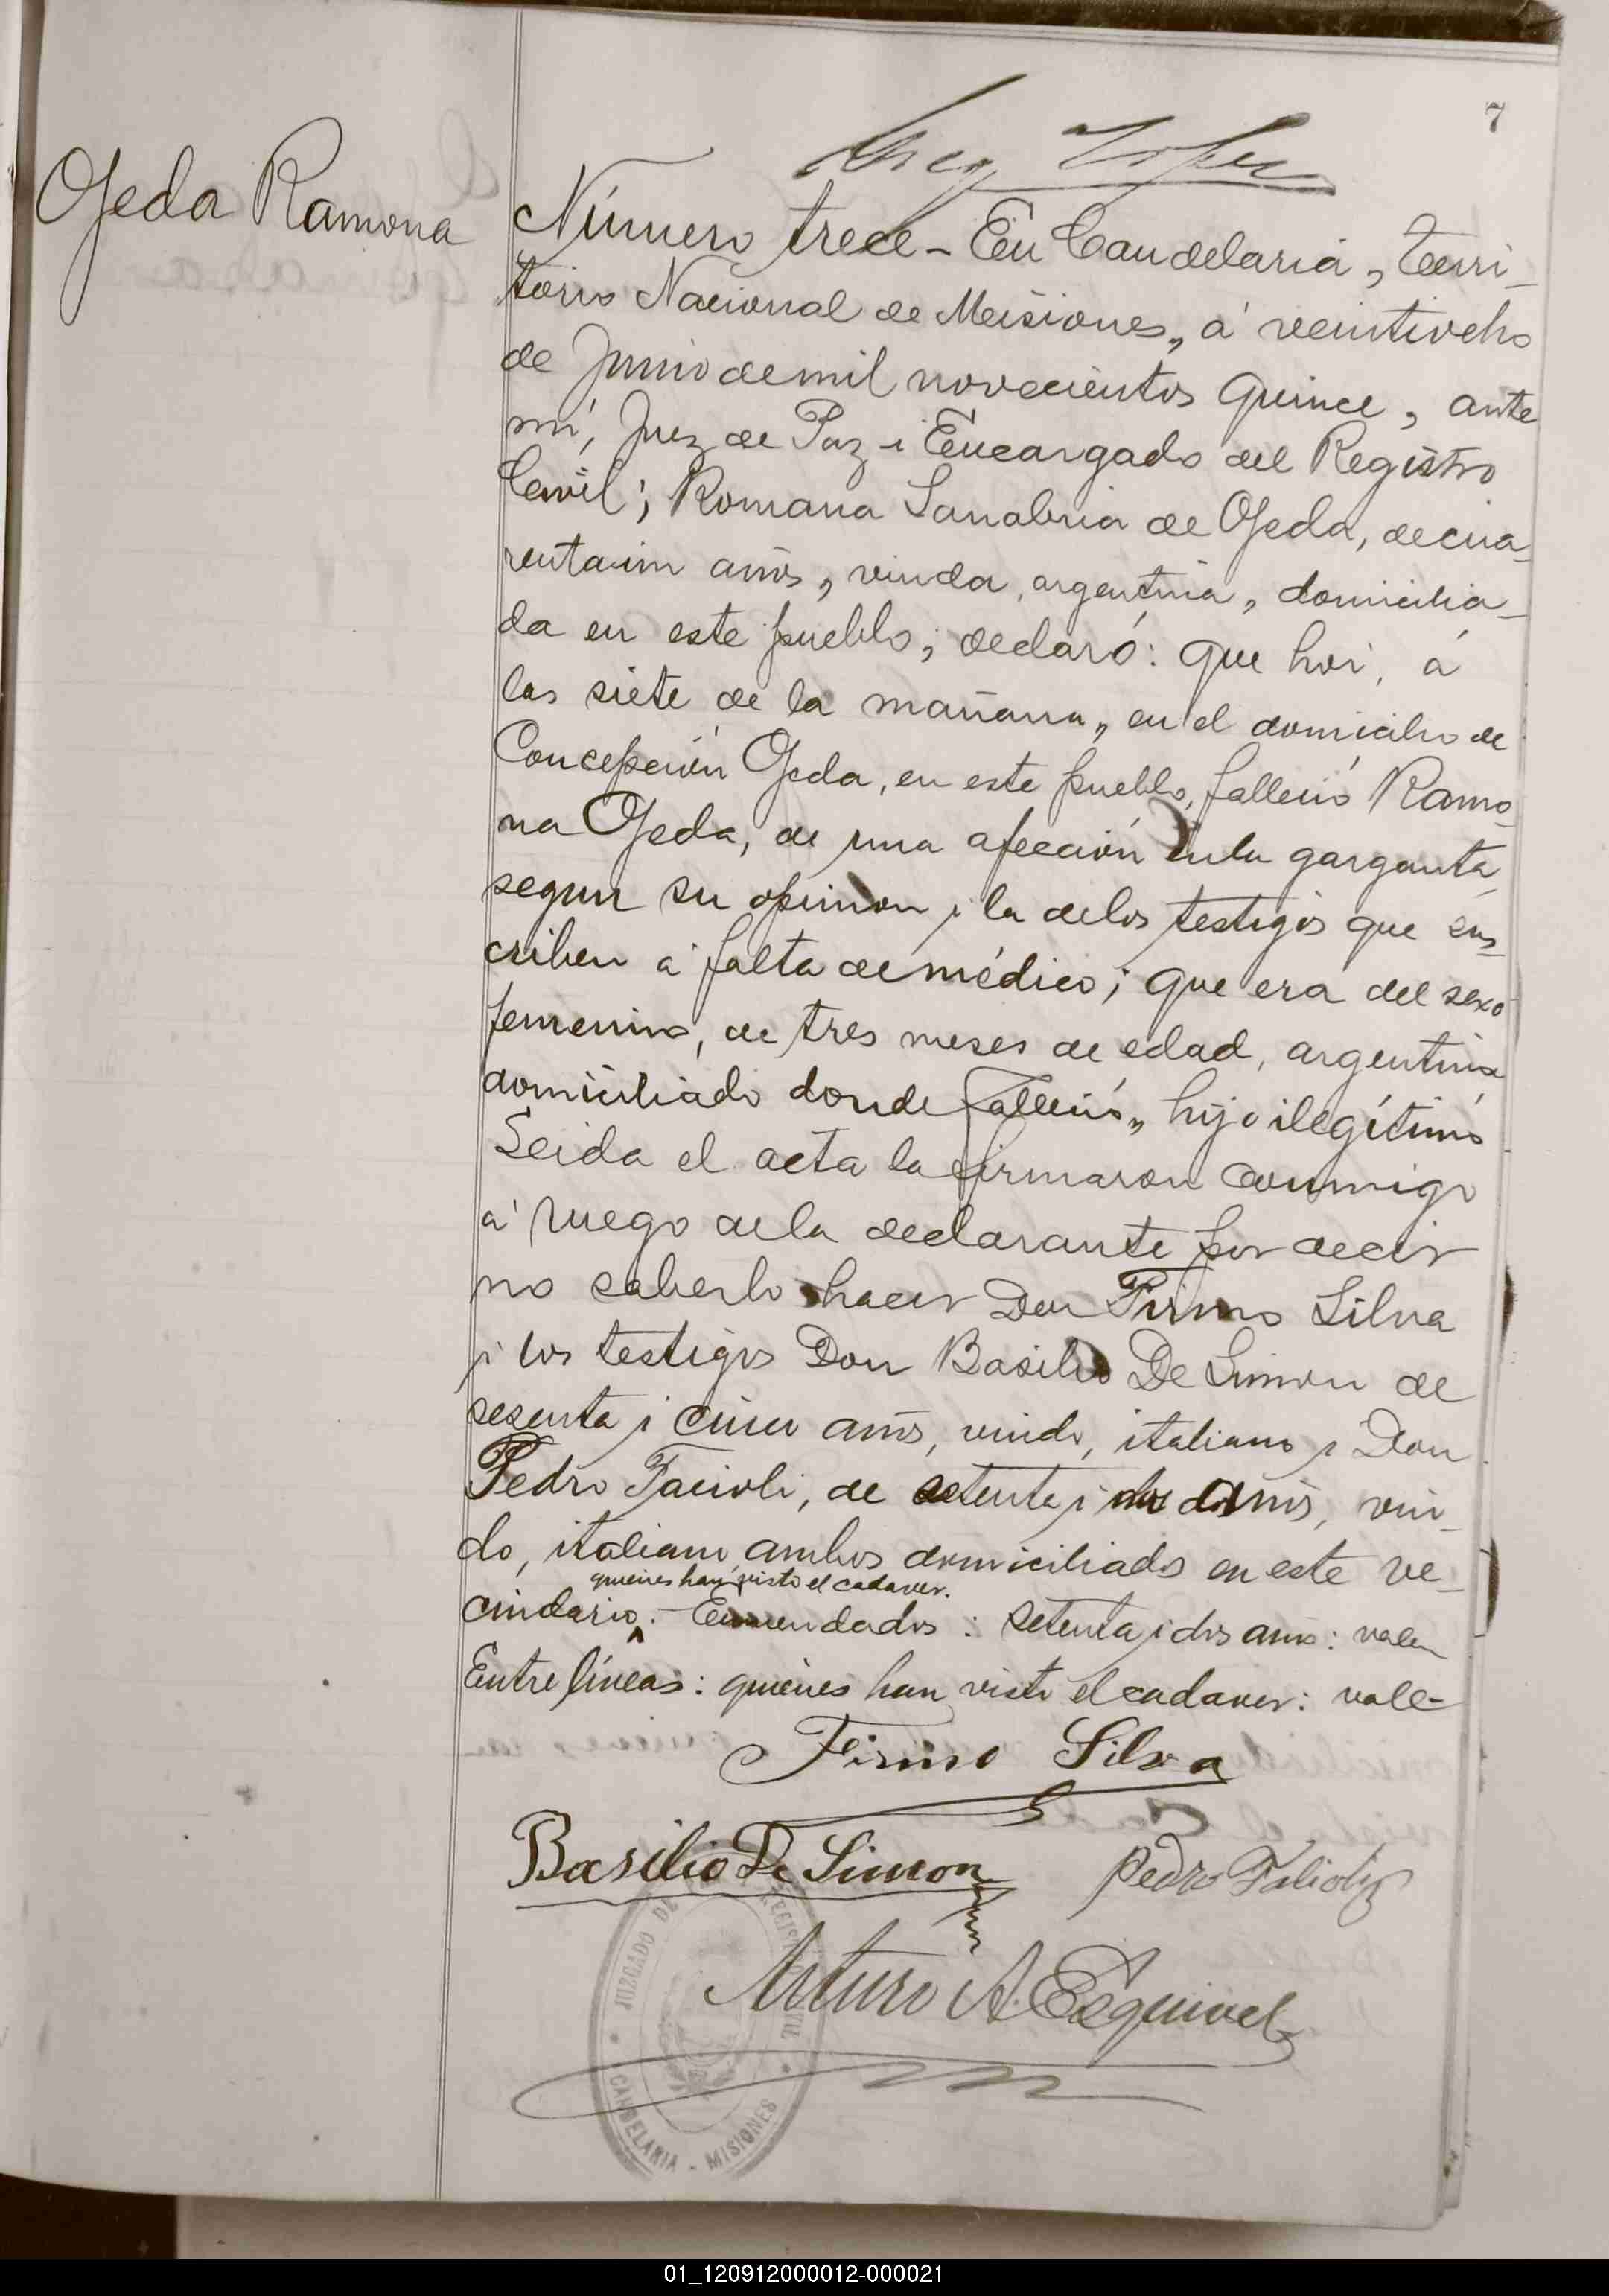 7
Ojeda Ramona
Número trece - En Candelaria, Terri-
torio Nacional de Misiones, á veintiocho
de Junio de mil novecientos quince, ante
mí, Juez de Paz i Encargado del Registro
Civil; Romana Sanabria de Ojeda, de cua-
rentaiun años, viuda, argentina, domicilia-
da en este pueblo; declaró: que hoi, á
las siete de la mañana, en el domicilio de
Concepción Ojeda, en este pueblo, falleció Ramo-
na Ojeda, de una afección en la garganta,
segun su opinion i la de los testigos que sus-
criben á falta de médico; que era del sexo
femenino, de tres meses de edad, argentina
domiciliado donde falleció, hijo ilegítimo
Leida el acta la firmaron conmigo
á ruego de la declarante por decir
no saberlo hacer Don Firmo Silva
i los testigos Don Basilio De Simon de
sesenta i cinco años, viudo, italiano i Don
Pedro Facioli, de setenta i dos años, viu-
do, italiano, ambos domiciliados en este ve-
quienes han visto el cadaver.
cindario. - Enmendados: setenta i dos años: valen
Entre líneas: quienes han visto el cadaver: vale-
Firmo Silva
Basilio De Simon
Pedro
Arturo A. Esquivel
JUZGADO DE
CANDELARIA - MISIONES
01_120912000012-000021